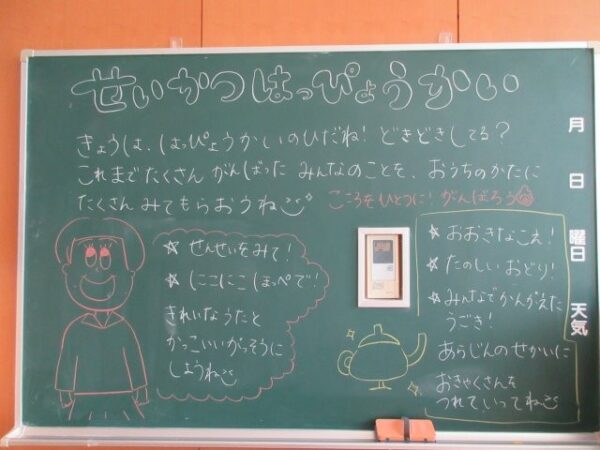 せいかつはっぴょうかい
きょうは、はっぴょうかいのひだね！どきどきしてる？
これまでたくさんがんばったみんなのことを、おうちのかたに
たくさんみてもらおうね
こころをひとつに！がんばろう
☆せんせいをみて！
☆にこにこほっぺで！
きれいなうたと
かっこいいがっそうに
しようね
☆おおきなこえ！
☆たのしいおどり！
☆みんなでかんがえた
うごき！
あらじんのせかいに
おきゃくさんを
つれていってね
月
日
曜日
天気